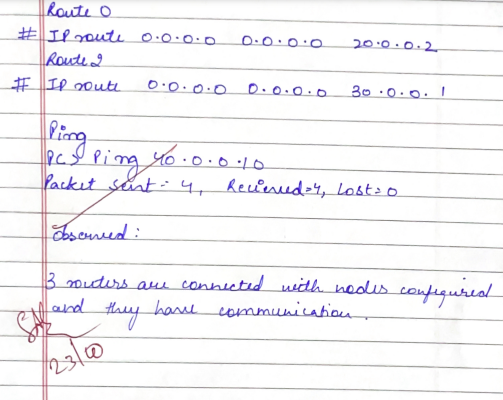 Route 0
# IP route 0.0.0.0 0.0.0.0 20.0.0.2
Route 2
# IP route 0.0.0.0 0.0.0.0 30.0.0.1
Ping
PC> Ping 40.0.0.10
Packet sent = 4, Recieved=4, Lost=0
Observed :
3 routers are connected with nodes configured
and they have communication.